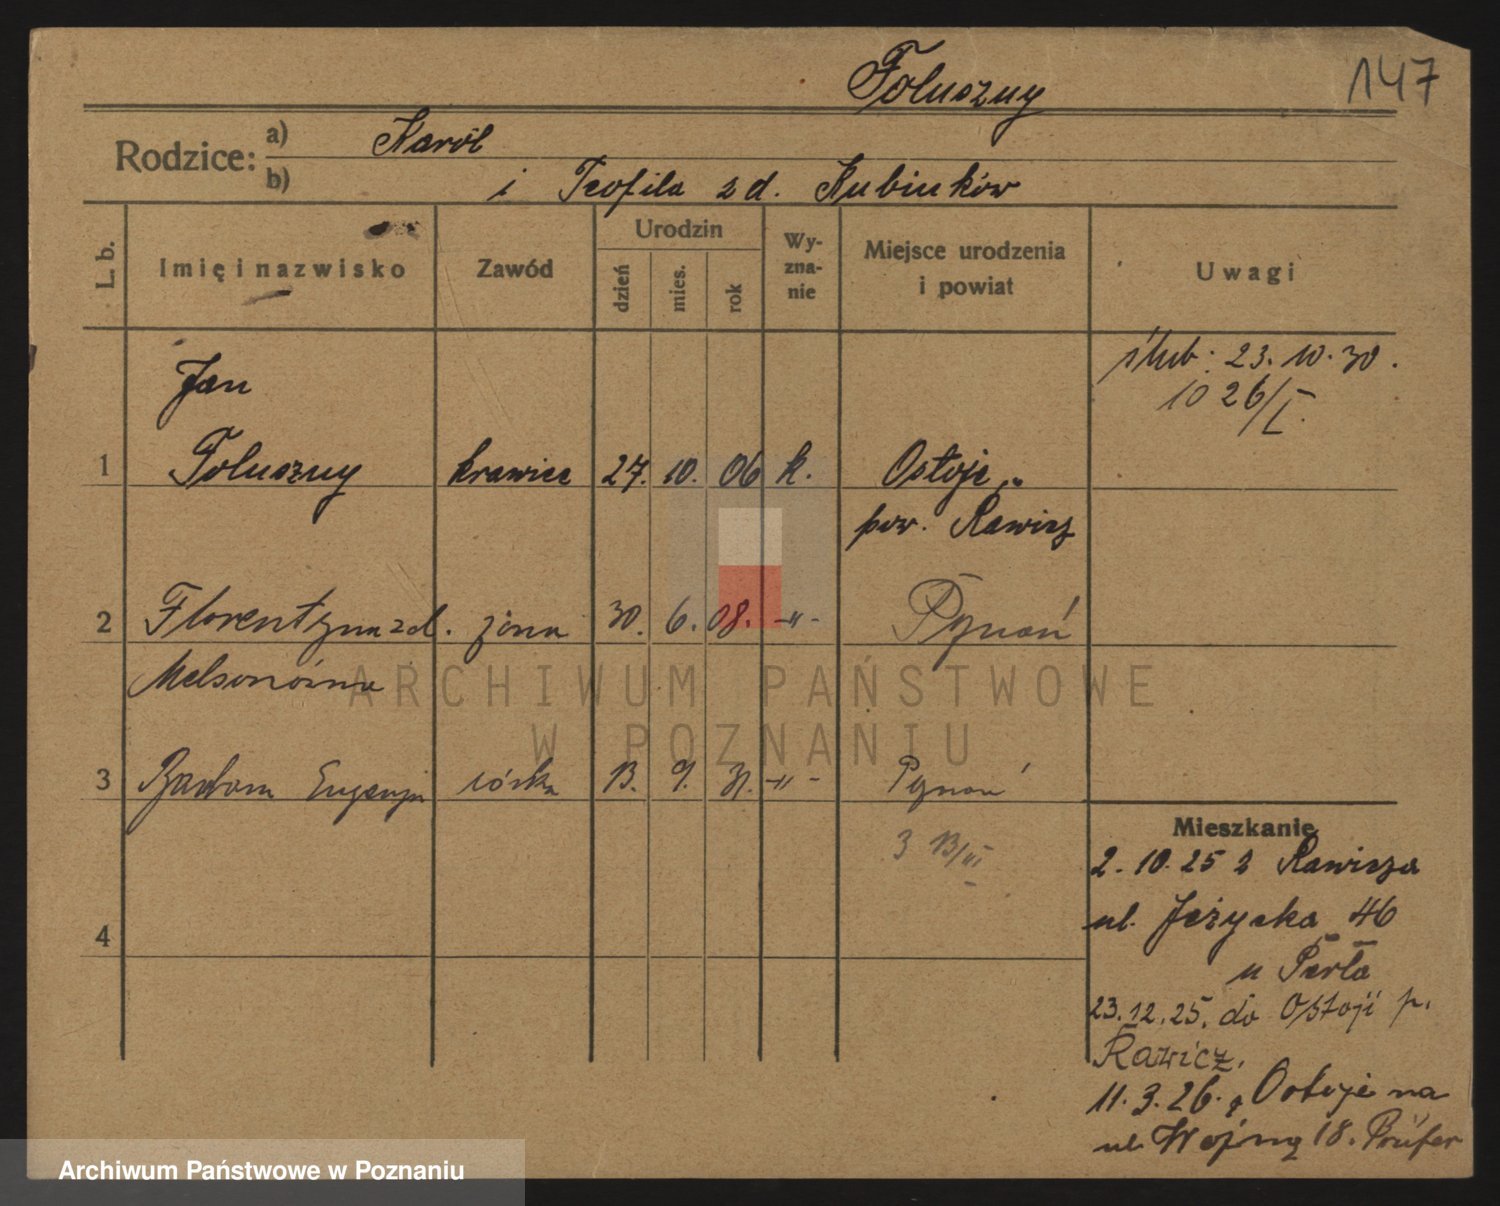 Foluszny 147
Rodzice: a) Karol
b) i Teofila z d. Kubiaków
L. b. Imię i nazwisko Zawód Urodzin dzień mies. rok Wy-zna-nie Miejsce urodzenia i powiat Uwagi
ślub: 23. 10. 30.
1026/I.
Jan
1 Foluszny krawiec 27. 10. 06 k. Ostoje
pow. Rawicz
2 Florentyna z d. żona 30. 6. 08. -"- Poznań
3 Barbara Eugenja córka 13. 9. 31. -"- Poznań
3 13/III
Mieszkanie
2. 10. 25 z Rawicza
ul. Jeżycka 46
u Perła
4
23.12.25. do Ostoji p.
Rawicz.
11. 3. 26. z Ostoje na
ul. Wojny 18. Prüfer
ARCHIWUM PAŃSTWOWE
W POZNANIU
Archiwum Państwowe w Poznaniu